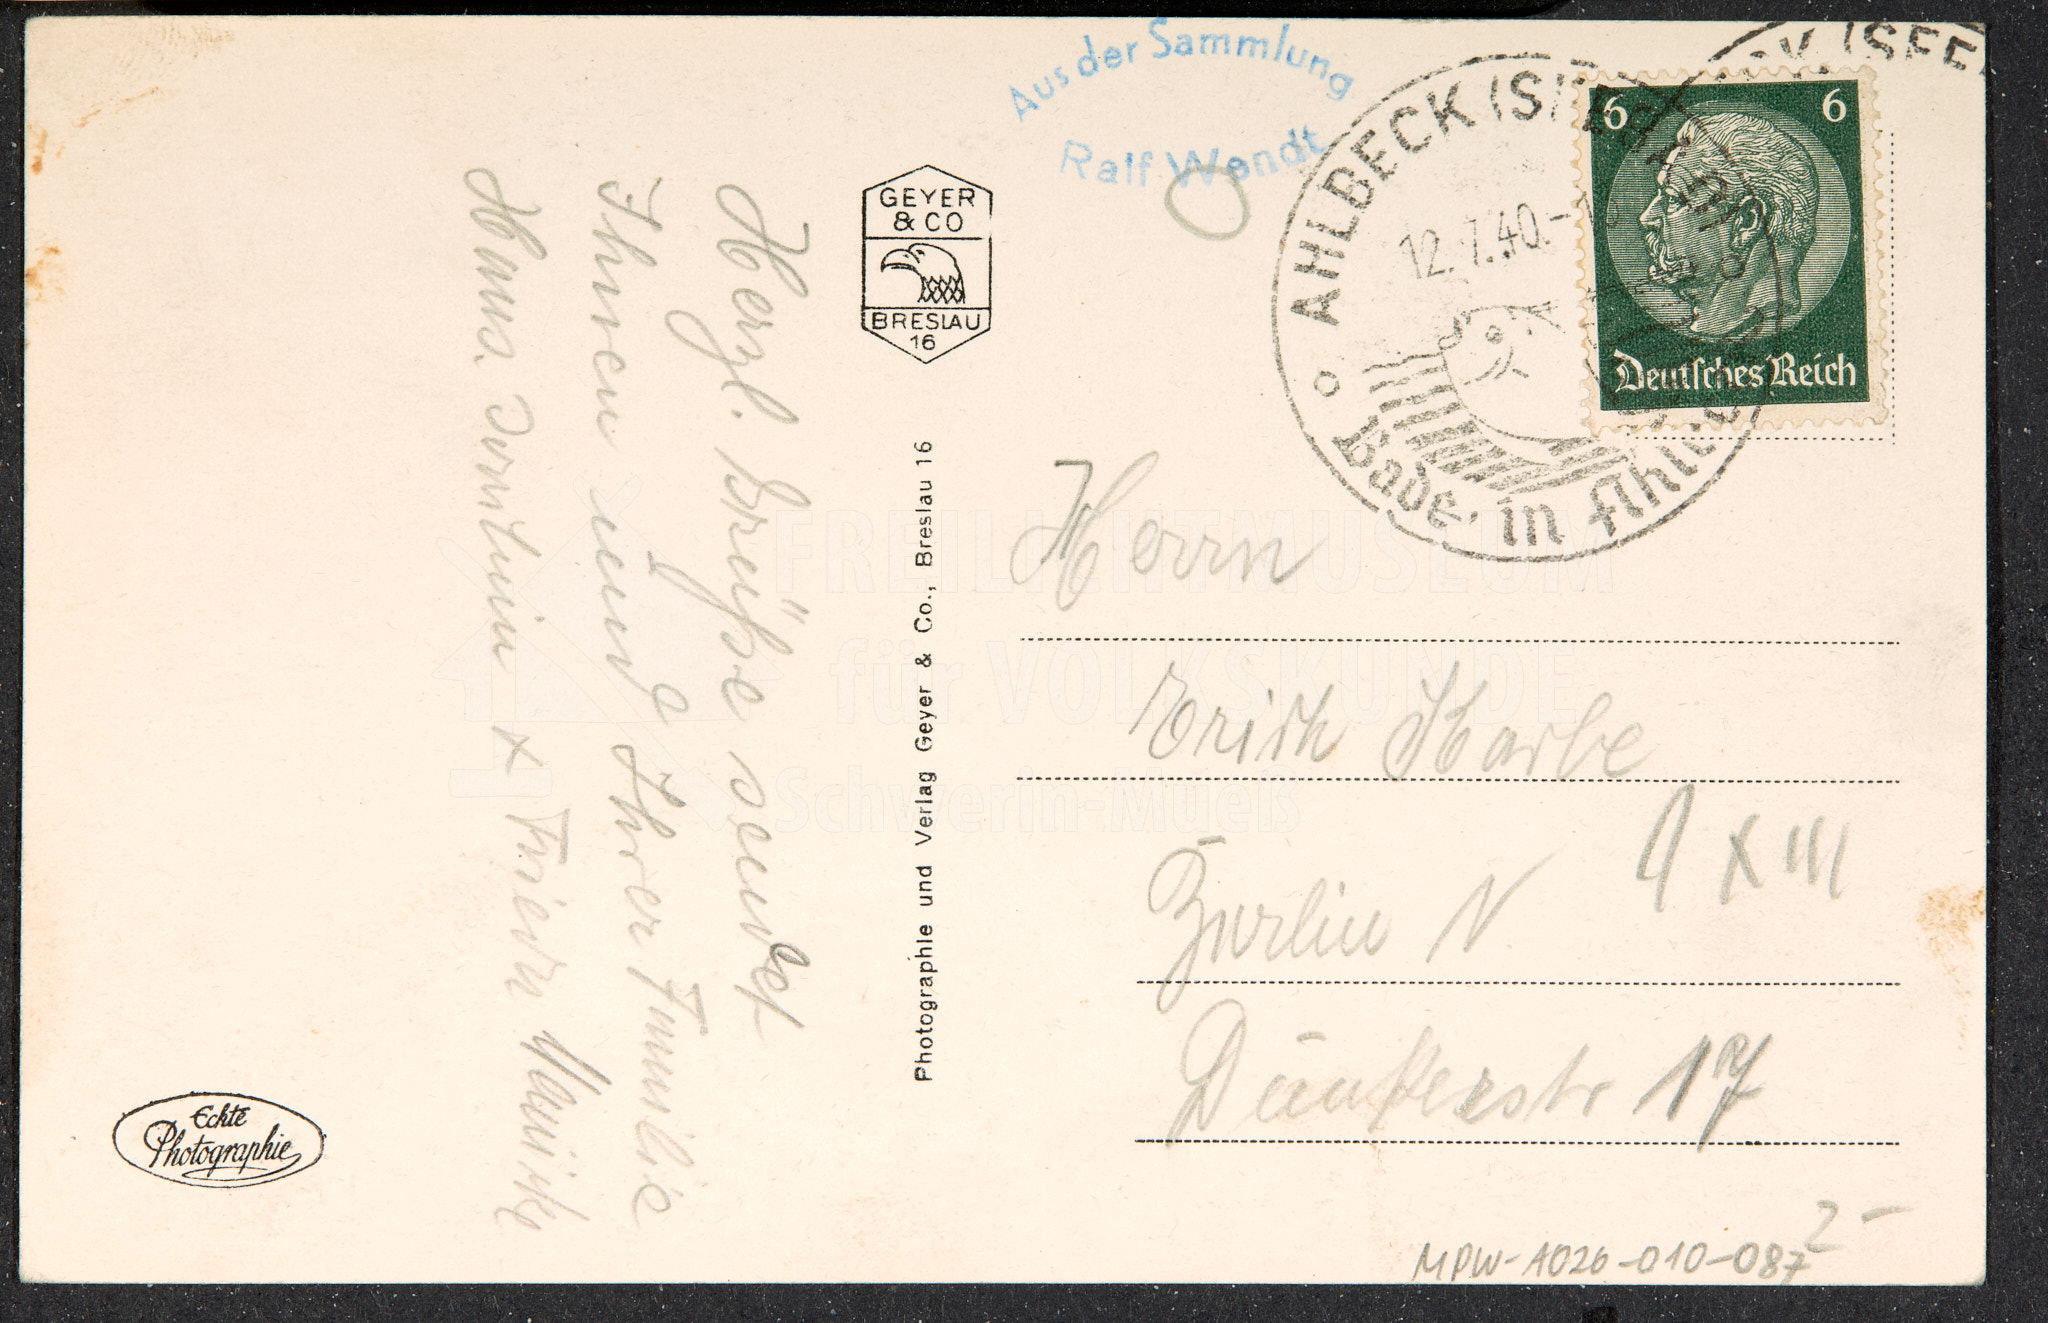 Aus der Sammlung
Ralf Wendt
AHLBECK (SEE
12.7.40.-
Bade in Ahlb
CK (SEE
6 6
Deutsches Reich
GEYER
& CO
BRESLAU
16
Photographie und Verlag Geyer & Co., Breslau 16
Echte
Photographie
Herzl. Grüße sendet
Ihnen und Ihrer Familie
Herrn
Erich
Berlin N
Dunkerstr 17
2-
MPW-A026-010-087
FREILICHTMUSEUM
für VOLKSKUNDE
Schwerin-Mueß